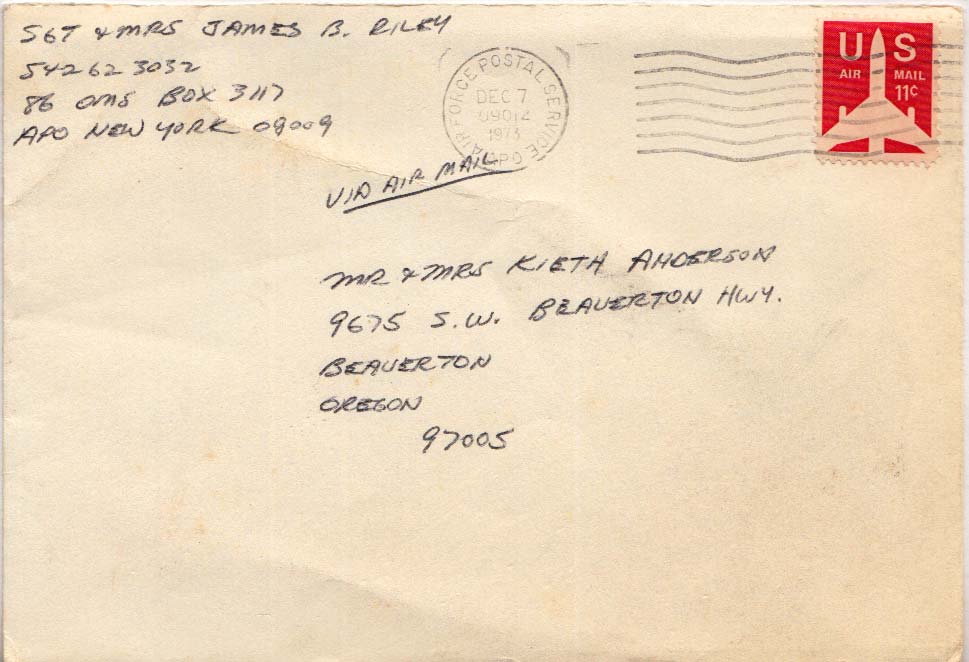 SGT & MRS JAMES B. RILEY
542 62 3032
86 OMS BOX 3117
APO NEW YORK 09009
AIR FORCE POSTAL SERVICE
DEC 7
09012
1973
APO
US
AIR MAIL
11c
VIA AIR MAIL
MR & MRS KIETH ANDERSON
9675 S.W. BEAVERTON HWY.
BEAVERTON
OREGON
97005